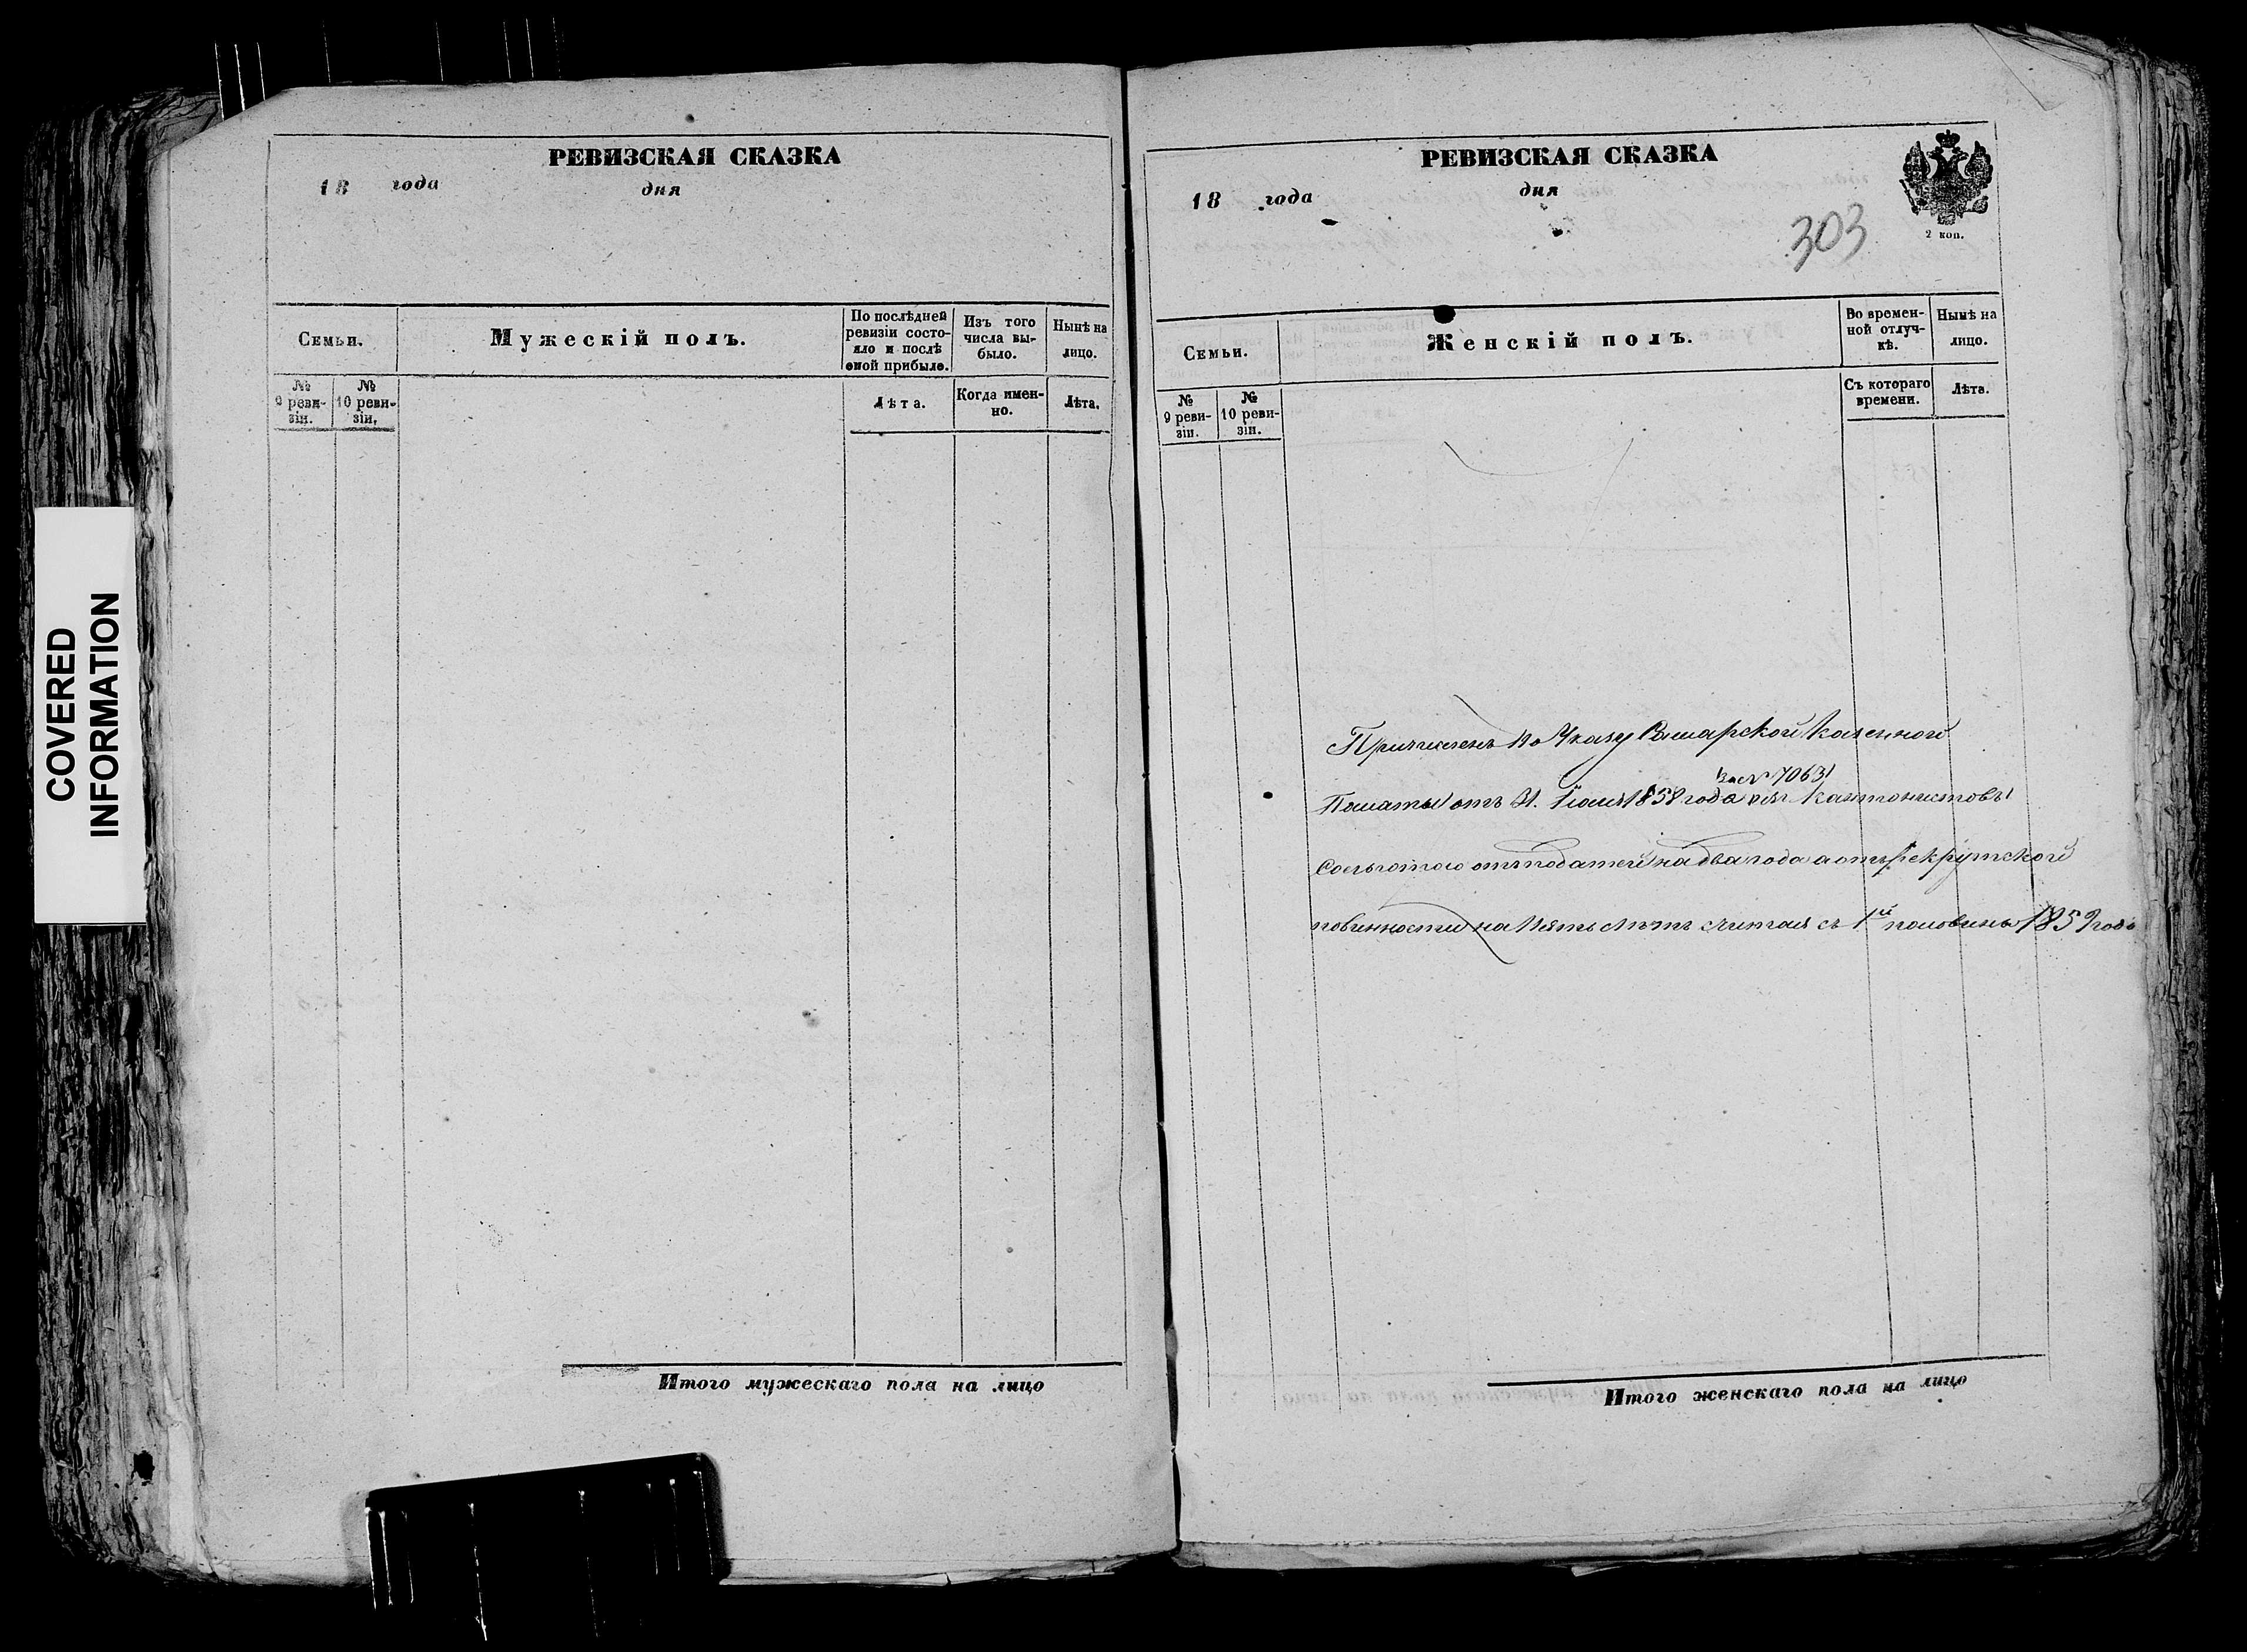 COVERED
INFORMATION
РЕВИЗСКАЯ СКАЗКА
18 года дня
Семьи.
Мужескій полъ.
По послѣдней
ревизіи состо-
яло и послѣ
оной прибыло.
Изъ того
числа вы-
было.
Нынѣ на
лицо.
№
9 реви-
зіи.
№
10 реви-
зіи.
Лѣта.
Когда имен-
но.
Лѣта.
Итого мужескаго пола на лицо
РЕВИЗСКАЯ СКАЗКА
18 года дня
303
2 коп.
Семьи.
Женскій полъ.
Во времен-
ной отлуч-
кѣ.
Нынѣ на
лицо.
№
9 реви-
зіи.
№
10 реви-
зіи.
Съ котораго
времени.
Лѣта.
Причисленъ по Указу Самарской Казенной
за № 7063
Палаты отъ 31 Іюля 1858 года изъ Кантонистовъ
Сольготою отъ податей на два года а отъ рекрутской
повинности на пять лѣтъ считая съ 1й половины 1859 года
Итого женскаго пола на лицо